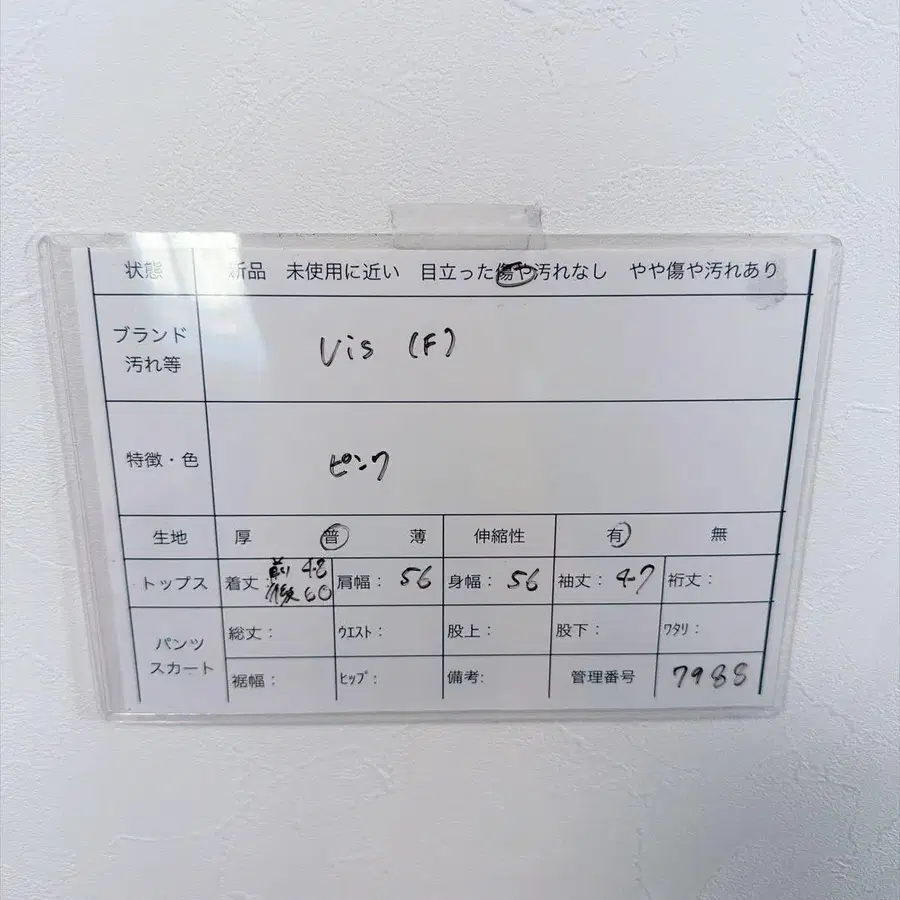 状態 新品 未使用に近い 目立った傷や汚れなし やや傷や汚れあり
ブランド
汚れ等
Vis (F)
特徴・色 ピンク
生地 厚 普 薄 伸縮性 有 無
トップス 着丈: 前 48 後 60 肩幅: 56 身幅: 56 袖丈: 47 裄丈:
パンツ
スカート
総丈: ウエスト: 股上: 股下: ワタリ:
裾幅: ヒップ: 備考: 管理番号 7988